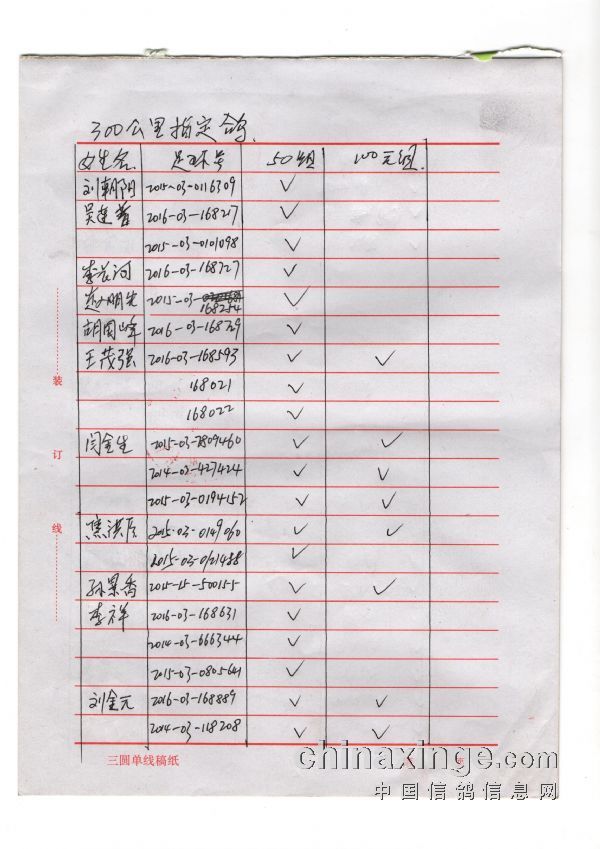 300公里指定鸽
姓名 足环号 50组 100元组
刘朝阳 2015-03-0116309 ✓
吴建 2016-03-168217 ✓
2015-03-0101098 ✓
李长河 2016-03-168727 ✓
赵明 2015-03-168254 ✓
胡国峰 2016-03-168729 ✓
王茂强 2016-03-168593 ✓ ✓
168021 ✓
168022 ✓
闫金生 2015-03-2809460 ✓ ✓
2014-03-427424 ✓ ✓
2015-03-0194152 ✓ ✓
焦洪 2015-03-0149060 ✓ ✓
2015-03-0121488 ✓
孙景香 2015-15-500155 ✓ ✓
李祥 2016-03-168631 ✓
2014-03-666344 ✓
2015-03-0805641 ✓
刘金元 2016-03-168889 ✓ ✓
2014-03-118208 ✓ ✓
装
订
线
三圆单线稿纸
chinaxinge.com
中国信鸽信息网